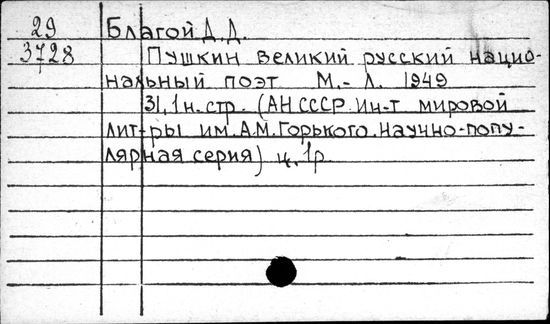 29 Благой Д.Д.
3728 Пушкин великий русский нацио-
нальный поэт М.-Л. 1949
31,1н.стр. (АН СССР. Ин-т мировой
лит-ры им. А.М. Горького. Научно-попу-
лярная серия) ц. 1р.